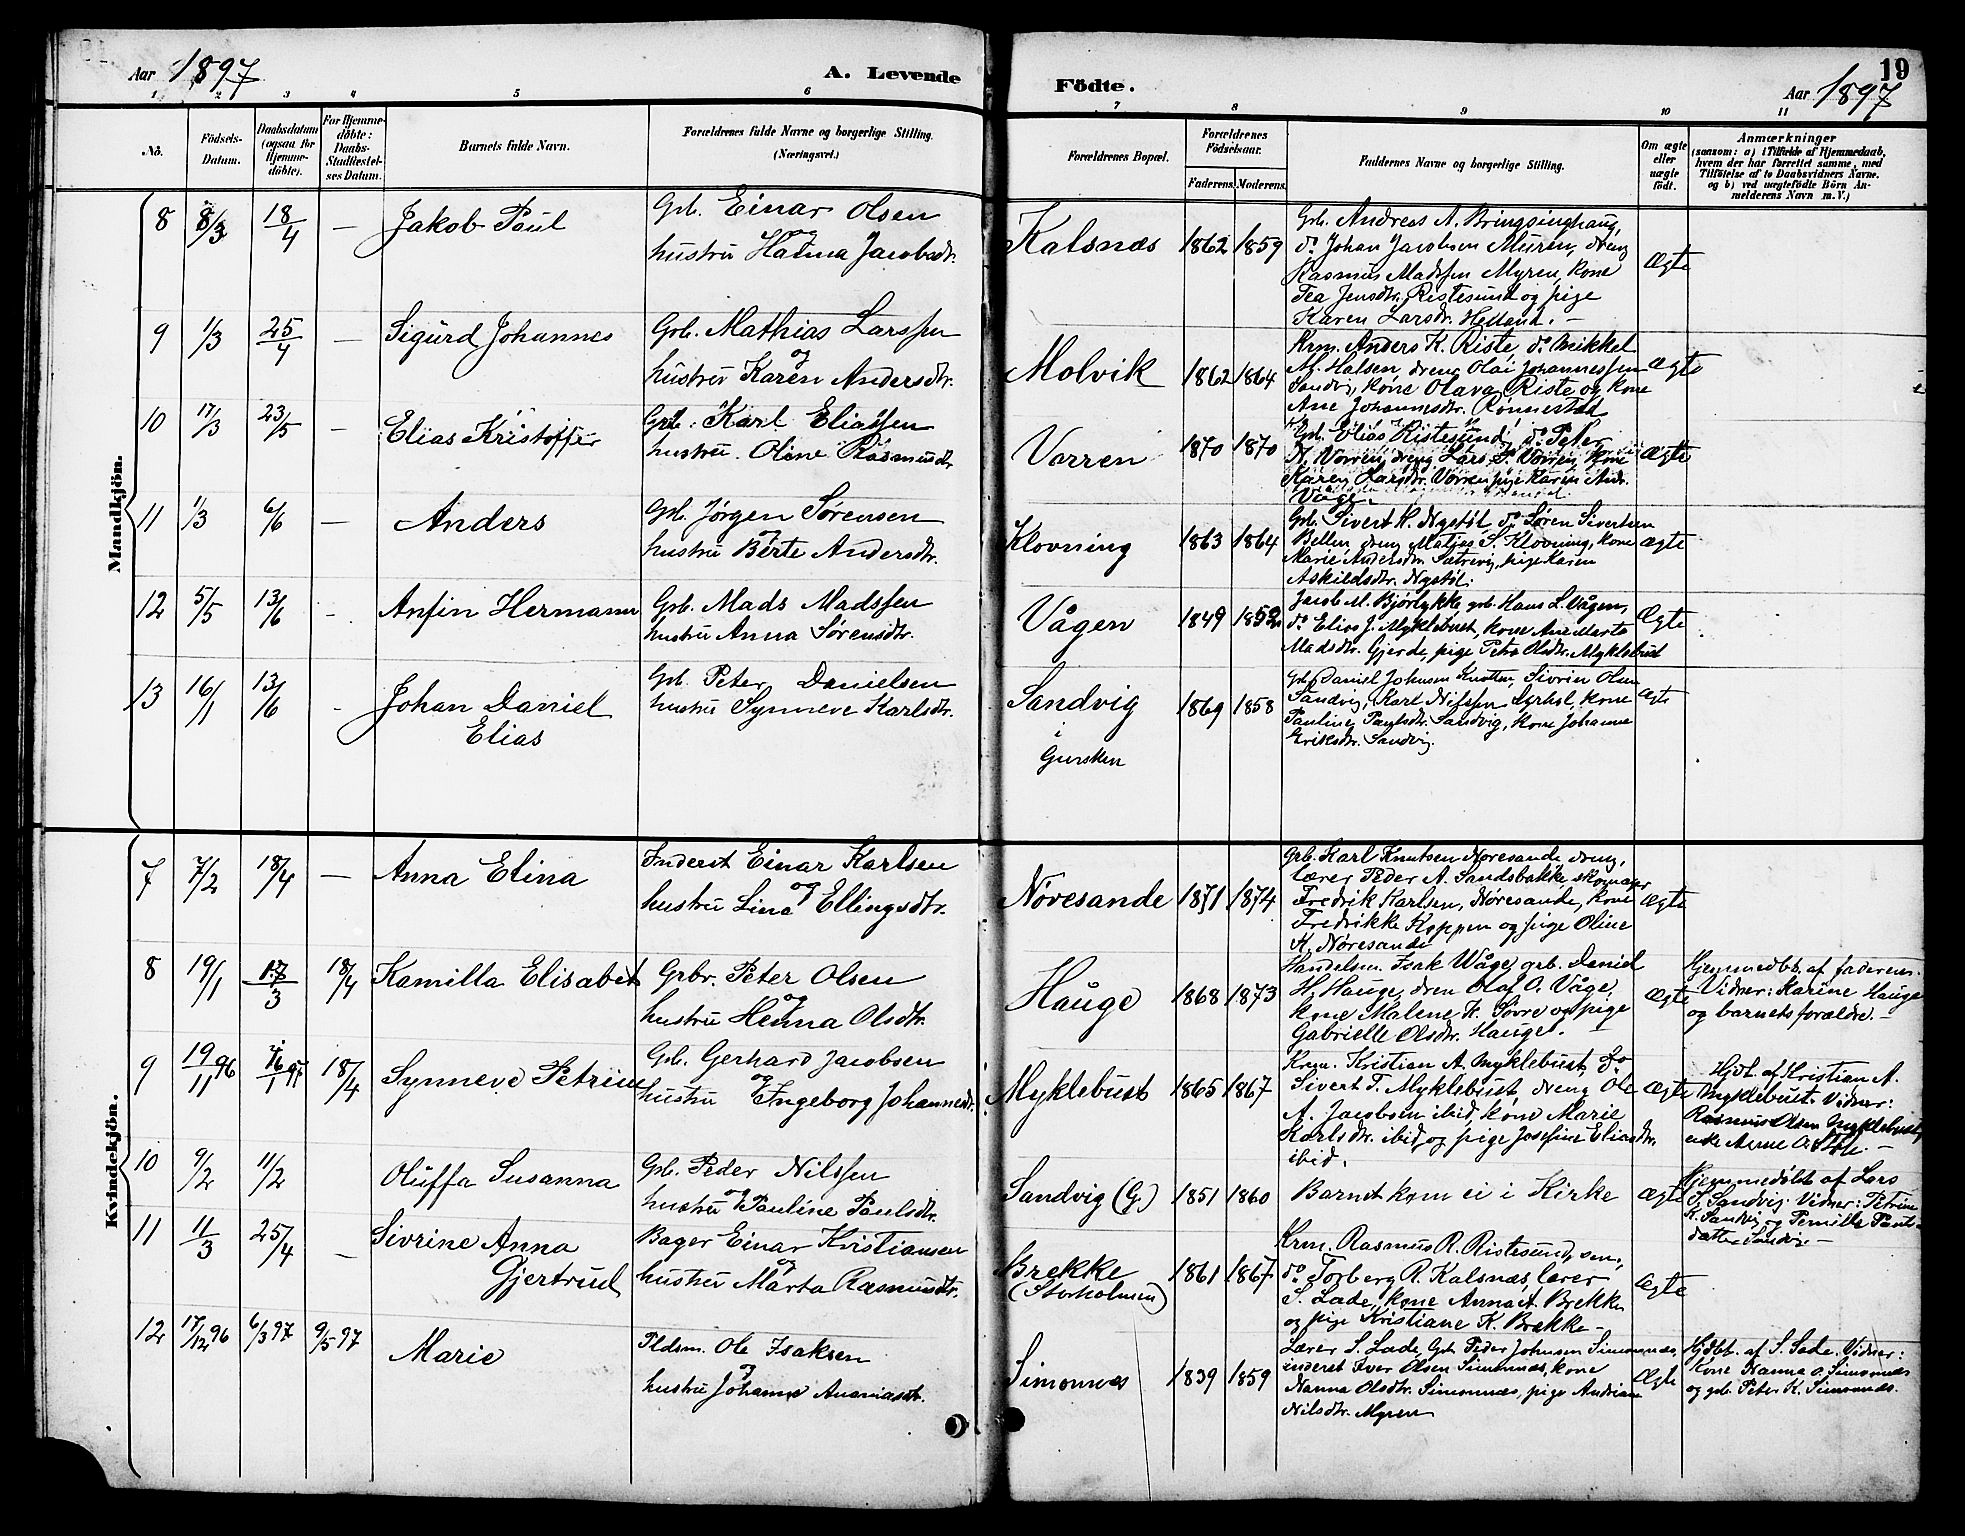 Aar 1897
A. Levende
Födte.
Aar 1897
19
1 2 3 4 5 6 7 8 9 10 11
No.
Födsels-
Datum.
Daabsdatum
(ogsaa for
Hjemme-
döbte).
For Hjemme-
döbte:
Daabs-
Stadfæstel-
ses Datum.
Barnets fulde Navn.
Forældrenes fulde Navne og borgerlige Stilling.
(Næringsvei.)
Forældrenes Bopæl.
Forældrenes
Födselsaar.
Faderens. Moderens.
Faddernes Navne og borgerlige Stilling.
Om ægte
eller
uægte
födt.
Anmærkninger
(saasom: a) i Tilfælde af Hjemmedaab,
hvem der har forrettet samme, med
Tilföielse af to Daabsvidners Navne.
og b) ved uægtefödte Börn An-
melderens Navn m.V.)
Mandkjön.
8 8/3 18/4 — Jakob Paul
Grb. Einar Olsen
og
hustru Hanna Jacobsdtr.
Kalsnæs 1862 1859
Grb. Andreas A. Bringsinghaug,
do Johan Jacobsen Myren, dreng
Rasmus Madssen Myren, kone
Tea Jensdtr. Ristesund og pige
Karen Larsdtr. Helland. —
Ægte
9 1/3 25/4 — Sigurd Johannes
Grb. Mathias Larssen
og
hustru Karen Andersdtr.
Molvik 1862 1864
Krm. Anders K. Riste, do Mikkel
M. Halsen, dreng Olai Johannessen
Sandvig, kone Olava Riste og kone
Ane Johannesdtr. Rønnestad
Ægte
10 17/3 23/5 — Elias Kristoffer
Grb. Karl Eliassen
hustru. Oline Rasmusdtr.
Vorren 1870 1870
Grb. Elias Ristesund, do Peter
N. Vorren, dreng Lars P. Vorren, kone
Karen Larsdtr. Vorren, pige Karen Andr.
Våge.
Ægte
11 1/3 6/6 — Anders
Grb. Jørgen Sørensen
og
hustru Berte Andersdtr.
Klovning 1863 1864
Grb. Sivert K. Nystøl, do Søren Sivertsen
Bellen, dreng Matias S. Klovning, kone
Marie Andersdtr. Sætrevig, pige Karen
Askildsdtr. Nystøl.
Ægte
12 5/5 13/6 - Anfin Hermann
Grb. Mads Madssen
hustru Anna Sørensdtr.
Vågen 1849 1852
Jacob M. Bjørlykke, grb. Hans L. Vågen,
do Elias J. Myklebust, kone Ane Marta
Madsdtr. Gjerde, pige Petra Olsdtr. Myklebust
Ægte
13 16/1 13/6 - Johan Daniel
Elias
Grb. Peter Danielsen
hustru Synneve Karlsdtr.
Sandvig
i
Gursken
1869 1858
Grb. Daniel Johnsen Knotten, Sivrin Olsen
Sandvig, Karl Nilssen Dyrhol, kone
Pauline Paulsdtr. Sandvig, kone Johanne
Eriksdtr. Sandvig.
Ægte
Kvindekjön.
7 7/2 18/4 — Anna Elina
Inderst Einar Karlsen
og
hustru Lina Ellingsdtr.
Nøresande 1871 1874
Grb. Karl Knutsen Nøresande, dreng,
lærer Peder A. Sandsbakke, skomager
Fredrik Karlsen, Nøresande, kone
Fredrikke Koppen og pige Oline
K. Nøresande
Ægte
8 19/1 17/3 18/4 Kamilla Elisabet
Grbr. Peter Olsen
og
hustru Henna Olsdtr.
Hauge 1868 1873
Handelsm. Isak Våge, grb. Daniel
H. Hauge, dren Olaf O. Våge,
kone Malene K. Sovre og pige
Gabrielle Olsdtr. Hauge. —
Ægte
Hjemmedbt. af faderen.
Vidner: Karine Hauge
og barnets forældre. —
9 19/11 96 16/1 97 18/4 Synneve Petrine
Grb. Gerhard Jacobsen
og
hustru Ingeborg Johannesdtr.
Myklebust 1865 1867
Krm. Kristian A. Myklebust, do
Sivert T. Myklebust, dreng Ole
A. Jacobsen ibid, kone Marie
Karlsdtr. ibid og pige Josefine Eliasdtr.
ibid.
Ægte
Hjdt. af Kristian A.
Myklebust. Vidner:
Rasmus Olsen Myklebust,
enke Anne O. —
10 9/2 11/2 Oluffa Susanna
Grb. Peder Nilssen
og
hustru Pauline Paulsdtr.
Sandvig (G.) 1851 1860
Barnet kom ei i Kirke
Ægte
Hjemmedøbt af Lars
S. Sandvig. Vidner: Petrine
K. Sandvig og Pernille Pauls-
datter Sandvig. —
11 11/3 25/4 — Sivrine Anna
Gjertrud
Bager Einar Kristiansen
og
hustru Marta Rasmusdtr.
Brekke
(Storholmen)
1861 1867
Krm. Rasmus R. Ristesund, sen.,
do Torberg R. Kalsnæs, lærer
S. Lade, kone Anna A. Brekke
og pige Kristiane K. Brekke —
Ægte
12 17/12 96 6/3 97 9/5 97 Marie
Pldsm. Ole Isaksen
og
hustru Johanne Ananiasdt.
Simonnes 1839 1859
Lærer S. Lade, Grb. Peder Johnsen Simonnæs,
inderst Iver Olsen Simonnæs, kone
Nanna Olsdtr. Simonnæs, pige Andriane
Nilsdtr. Myren
Ægte
Hjdbt. af S. Lade. Vidner:
Kone Nanna O. Simonnæs
og grb. Peter K. Simonnæs.